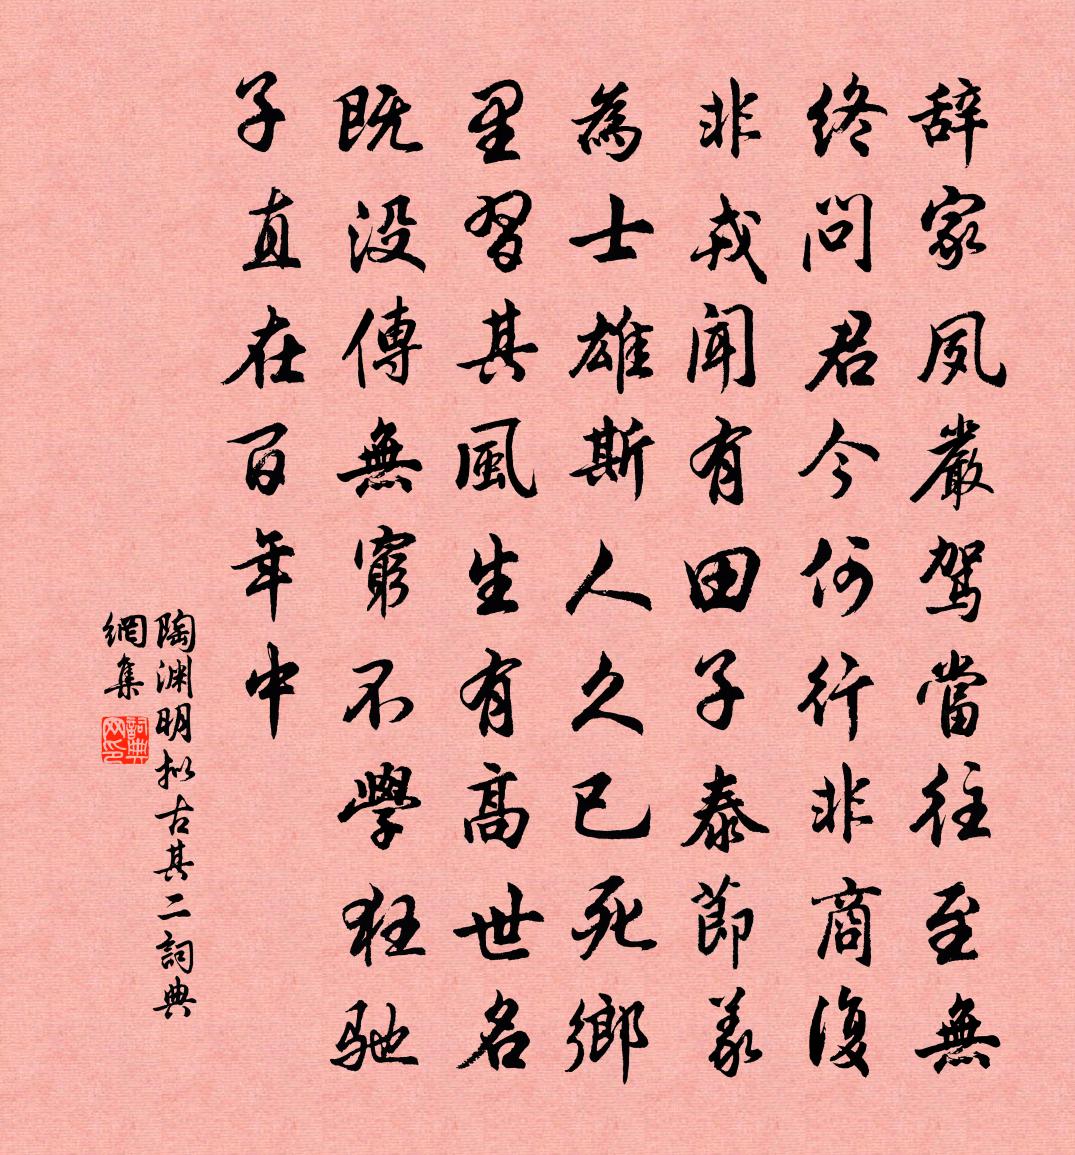 辞家夙嚴駕當往至無
終問君今何行非商復
非戎聞有田子泰節義
為士雄斯人久已死鄉
里習其風生有高世名
既没傳無窮不學狂馳
子直在百年中
陶渊明拟古其二詞典
網集
詞典網印